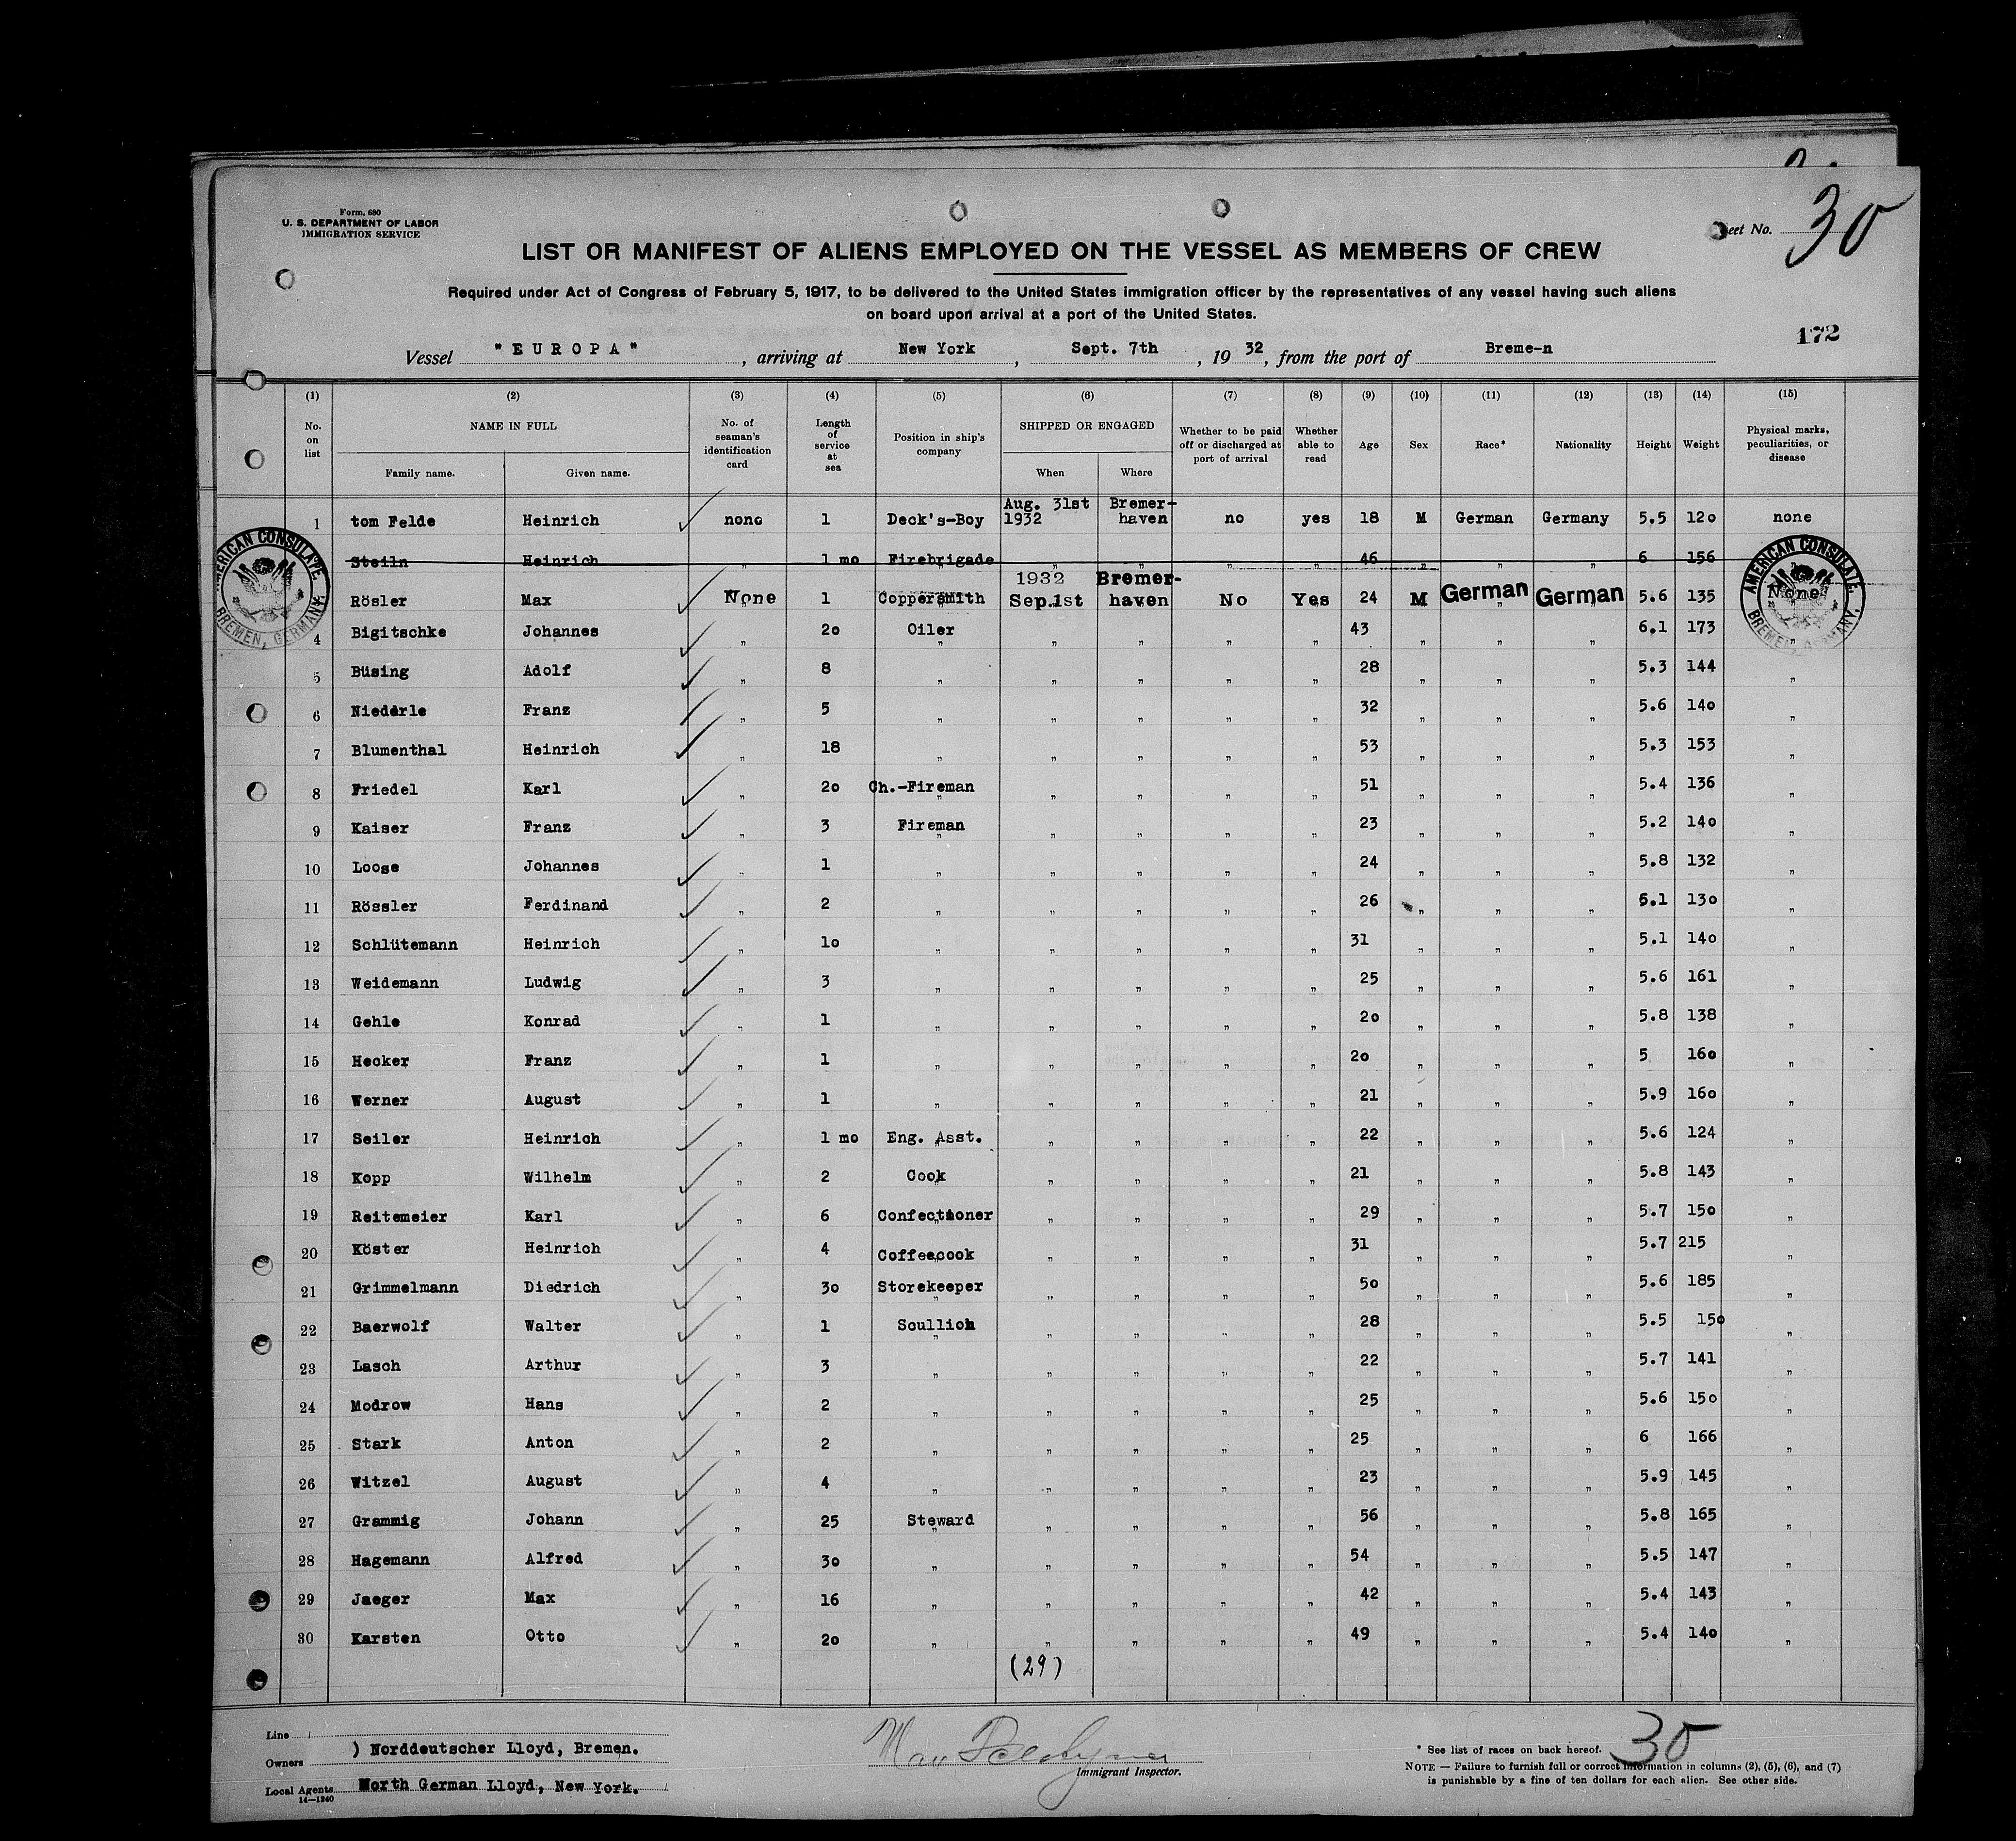 30
Form. 680
U. S. DEPARTMENT OF LABOR
IMMIGRATION SERVICE
eet No.
LIST OR MANIFEST OF ALIENS EMPLOYED ON THE VESSEL AS MEMBERS OF CREW
Required under Act of Congress of February 5, 1917, to be delivered to the United States immigration officer by the representatives of any vessel having such aliens
on board upon arrival at a port of the United States.
172
Vessel "EUROPA", arriving at New York, Sept. 7th, 1932, from the port of Breme-n
(1) (2) (3) (4) (5) (6) (7) (8) (9) (10) (11) (12) (13) (14) (15)
No. on list NAME IN FULL Family name. Given name. No. of seaman's identification card Length of service at sea Position in ship's company SHIPPED OR ENGAGED When Where Whether to be paid off or discharged at port of arrival Whether able to read Age Sex Race* Nationality Height Weight Physical marks, peculiarities, or disease
1 tom Felde Heinrich none 1 Deck's-Boy Aug. 31st 1932 Bremer-haven no yes 18 M German Germany 5.5 12o none
Steiln Heinrich " 1 mo Firebrigade " " " " 46 " " " 6 156 "
Rösler Max None 1 Coppersmith 1932 Sep.1st Bremer-haven No Yes 24 M German German 5.6 135 None
4 Bigitschke Johannes " 2o Oiler " " " " 43 " " " 6.1 173 "
5 Büsing Adolf " 8 " " " " " 28 " " " 5.3 144 "
6 Niederle Franz " 5 " " " " " 32 " " " 5.6 14o "
7 Blumenthal Heinrich " 18 " " " " " 53 " " " 5.3 153 "
8 Friedel Karl " 2o Ch.-Fireman " " " " 51 " " " 5.4 136 "
9 Kaiser Franz " 3 Fireman " " " " 23 " " " 5.2 14o "
10 Loose Johannes " 1 " " " " " 24 " " " 5.8 132 "
11 Rössler Ferdinand " 2 " " " " " 26 " " " 6.1 13o "
12 Schlütemann Heinrich " 1o " " " " " 31 " " " 5.1 14o "
13 Weidemann Ludwig " 3 " " " " " 25 " " " 5.6 161 "
14 Gehle Konrad " 1 " " " " " 2o " " " 5.8 138 "
15 Hecker Franz " 1 " " " " " 2o " " " 5 16o "
16 Werner August " 1 " " " " " 21 " " " 5.9 16o "
17 Seiler Heinrich " 1 mo Eng. Asst. " " " " 22 " " " 5.6 124 "
18 Kopp Wilhelm " 2 Cook " " " " 21 " " " 5.8 143 "
19 Reitemeier Karl " 6 Confectioner " " " " 29 " " " 5.7 15o "
20 Köster Heinrich " 4 Coffeecook " " " " 31 " " " 5.7 215 "
21 Grimmelmann Diedrich " 3o Storekeeper " " " " 5o " " " 5.6 185 "
22 Baerwolf Walter " 1 Scullion " " " " 28 " " " 5.5 15o "
23 Lasch Arthur " 3 " " " " " 22 " " " 5.7 141 "
24 Modrow Hans " 2 " " " " " 25 " " " 5.6 15o "
25 Stark Anton " 2 " " " " " 25 " " " 6 166 "
26 Witzel August " 4 " " " " " 23 " " " 5.9 145 "
27 Grammig Johann " 25 Steward " " " " 56 " " " 5.8 165 "
28 Hagemann Alfred " 3o " " " " " 54 " " " 5.5 147 "
29 Jaeger Max " 16 " " " " " 42 " " " 5.4 143 "
30 Karsten Otto " 2o " " " " " 49 " " " 5.4 14o "
(29)
AMERICAN CONSULATE. BREMEN, GERMANY.
AMERICAN CONSULATE. BREMEN, GERMANY.
Line
Owners ) Norddeutscher Lloyd, Bremen.
Local Agents North German Lloyd, New York.
14—1240
Max
Immigrant Inspector.
* See list of races on back hereof.
30
NOTE — Failure to furnish full or correct information in columns (2), (5), (6), and (7)
is punishable by a fine of ten dollars for each alien. See other side.